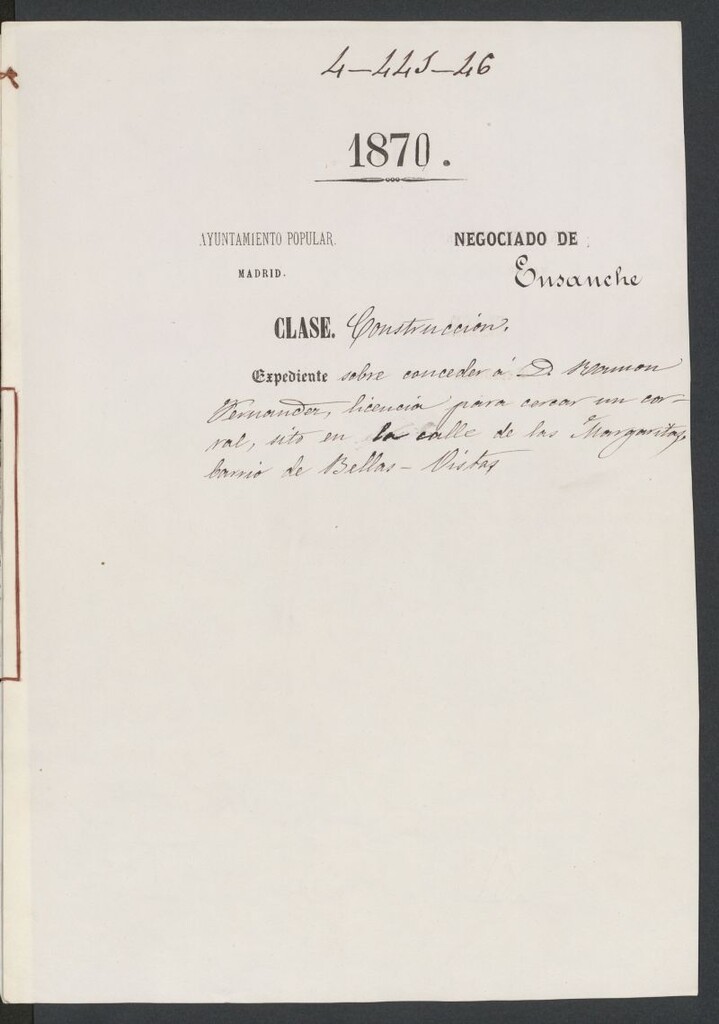 4-445-46
1870.
AYUNTAMIENTO POPULAR.
MADRID.
NEGOCIADO DE
Ensanche
CLASE. Construccion.
Expediente sobre conceder á D. Ramon
Fernandez, licencia para cercar un cor-
ral, sito en la calle de las Margaritas,
barrio de Bellas-Vistas